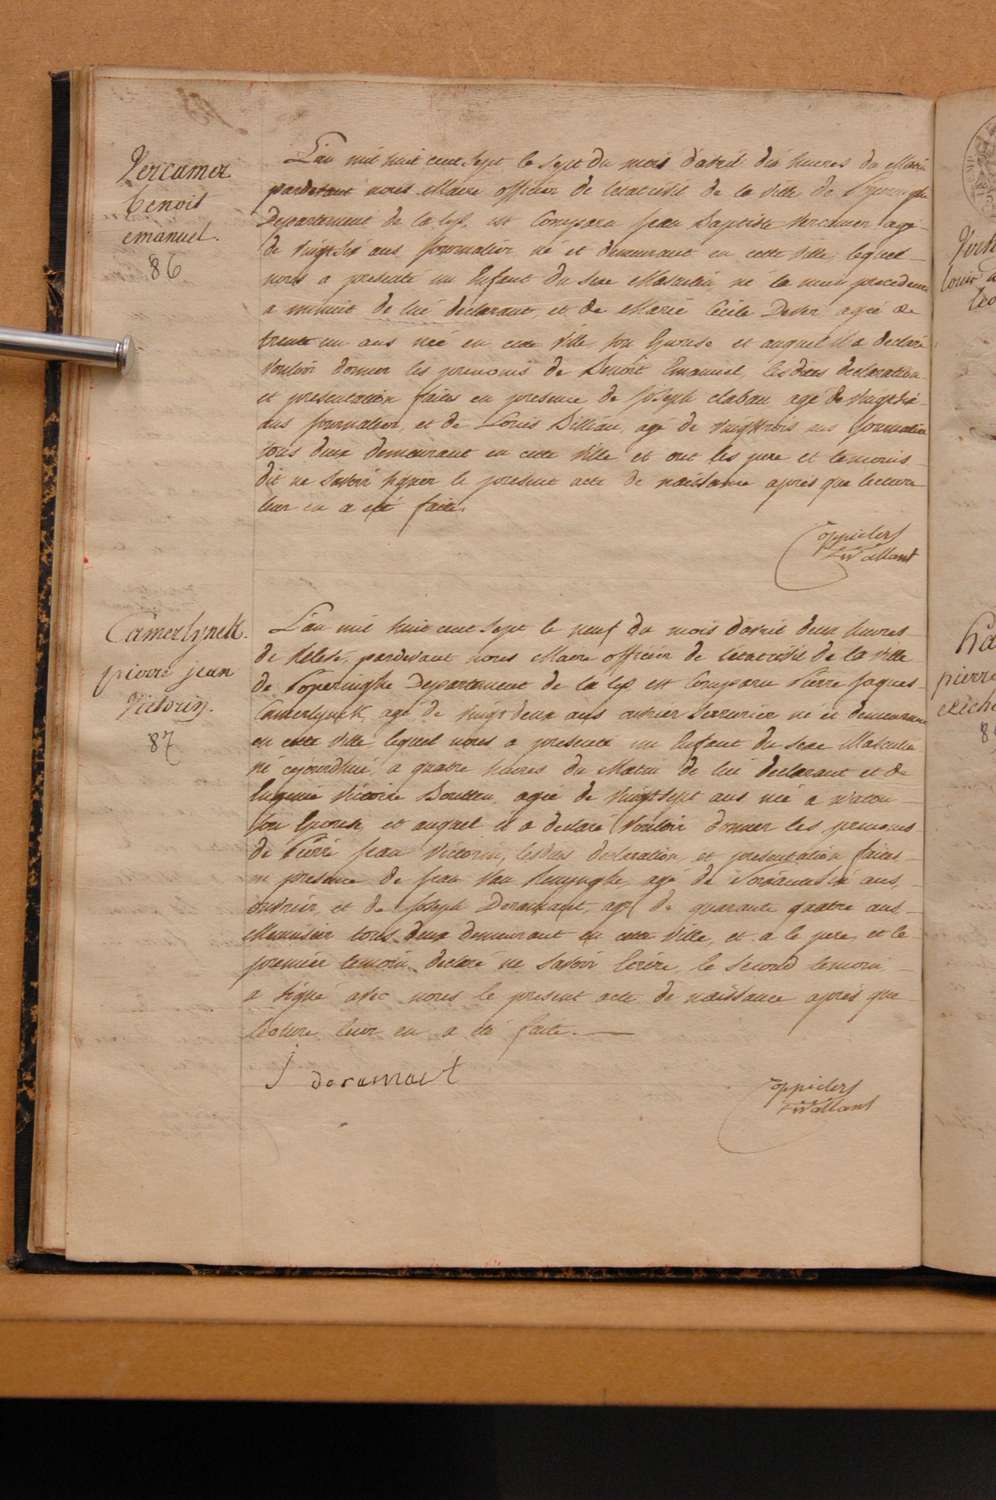 Vercamer
benoit
emanuel.
86
L'an mil huit cent sept le sept du mois d'avril dix heures du Matin
pardevant nous Maire officier de l'etat civil de la ville de Poperinghe
Departement de la lys, est Comparu Jean Baptiste Vercamer agé
de vingt six ans journalier né et demeurant en cette ville, lequel
nous a presenté un Enfant du sexe Masculin né la nuit precedente
a minuit de lui declarant et de Marie Cécile agée de
trente un ans née en cette ville son Epouse et auquel il a declaré
vouloir donner les prenoms de Benoit Emanuel, les dites declaration
et presentation faites en presence de Joseph agé de vingt six
ans journalier, et de Louis Dilliau, agé de vingt trois ans journalier
tous deux demeurant en cette ville et ont les pere et temoins
dit ne savoir signer le present acte de naissance après que lecture
leur en a été faite.
Coppieters
Camerlynck.
pierre jean
Victorin.
87
L'an mil huit cent sept le neuf du mois d'avril deux heures
de Relevé, pardevant nous Maire officier de l'etat civil de la ville
de Poperinghe Departement de la lys est Comparu Pierre Jaques
Camerlynck, agé de vingt deux ans ouvrier serrurier né et demeurant
en cette ville lequel nous a presenté un Enfant du sexe Masculin
né cejourdhui, a quatre heures du Matin de lui declarant et de
Eugenie Victoire Boutten, agée de vingt sept ans née a watou
son Epouse, et auquel il a declaré vouloir donner les prenoms
de Pierre Jean Victorin, lesdites declaration et presentation faites
en presence de Jean Van agé de ans,
ouvrier, et de Joseph Deramaut, agé de quarante quatre ans
Menuisier tous deux demeurant en cette ville, et a le pere, et le
premier temoin declaré ne savoir Ecrire, le second temoin
a signé avec nous le present acte de naissance après que
lecture leur en a été faite.
J deramaut
Coppieters